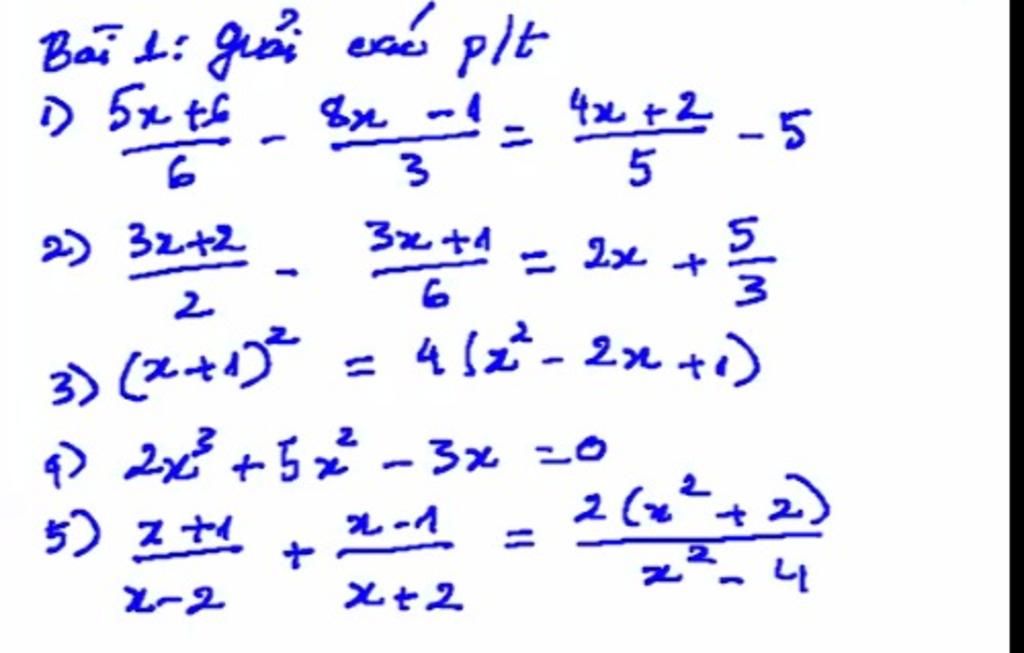 Bài 1: giải các p/t
1) \frac{5x+6}{6} - \frac{8x-1}{3} = \frac{4x+2}{5} - 5
2) \frac{3x+2}{2} - \frac{3x+1}{6} = 2x + \frac{5}{3}
3) (x+1)² = 4(x² - 2x + 1)
4) 2x³ + 5x² - 3x = 0
5) \frac{x+1}{x-2} + \frac{x-1}{x+2} = \frac{2(x²+2)}{x²-4}